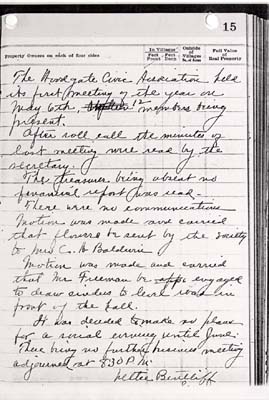 15
Property Owners on each of four sides
In Villages
Feet Front
Feet Deep
Outside of Villages
No. of Acres
Full Value of Real Property
The Woodgate Civic Association held
its first meeting of the year on
May 6th, 12 members being
present.
After roll call the minutes of
last meeting were read by the
secretary.
The treasurer being absent no
financial report was read.
There were no communications
Motion was made and carried
that flowers be sent by the society
to Mrs C. A Baldwin
Motion was made and carried
that Mr Freeman be engaged
to draw cinders to level road in
front of the hall.
It was decided to make no plans
for a social evening until June.
There being no further business meeting
adjourned at 8:30 P.M.